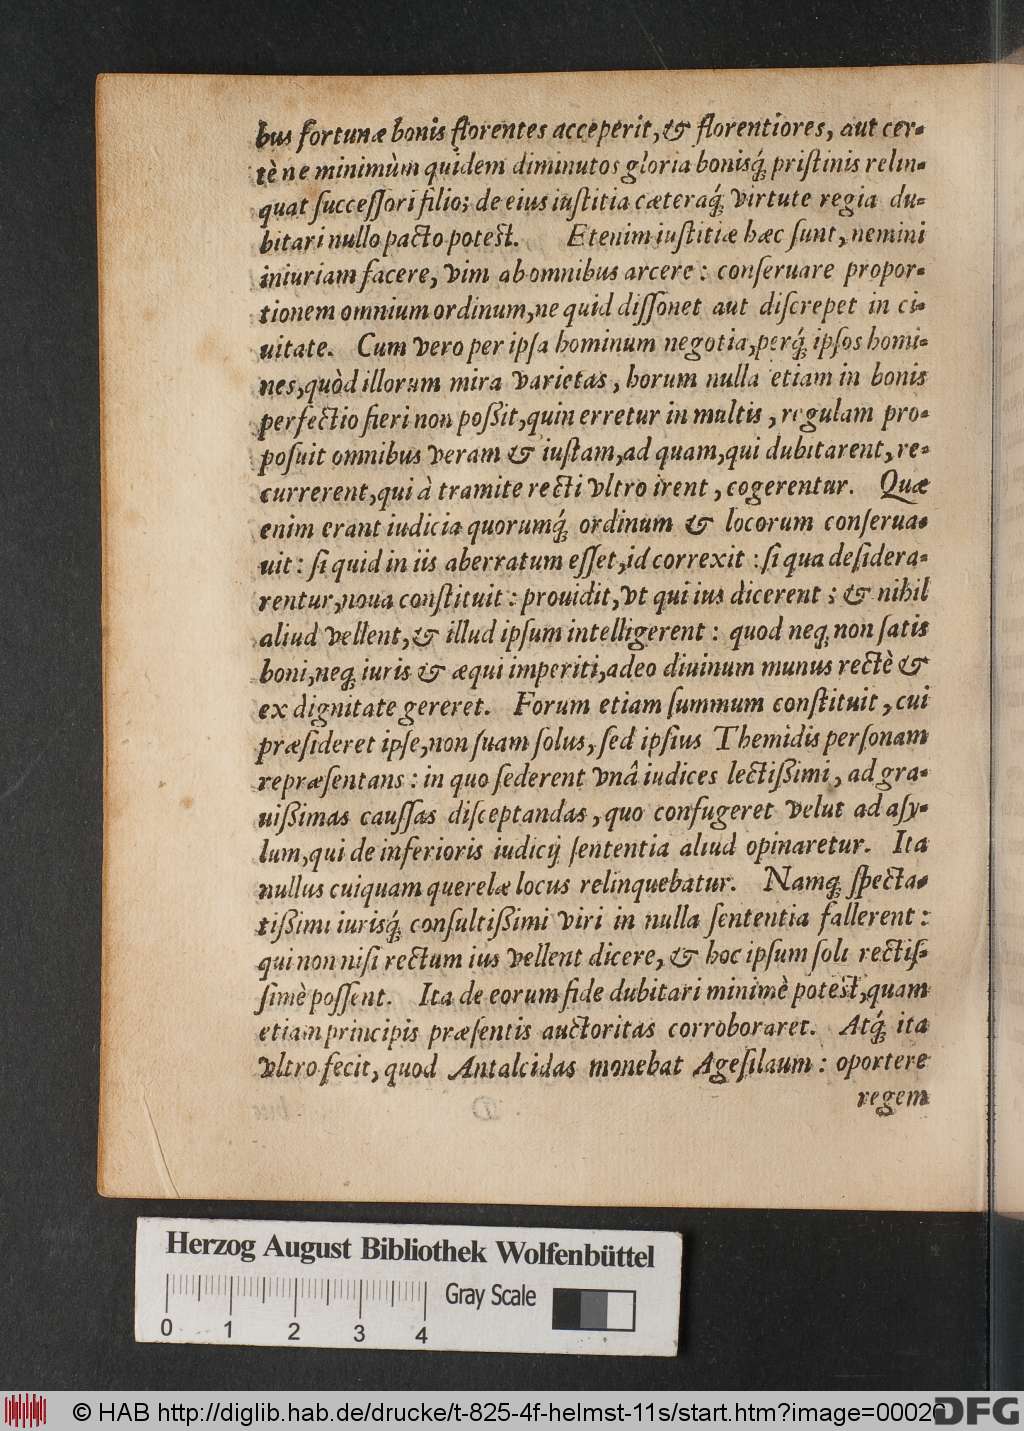 bus fortunæ bonis florentes acceperit, & florentiores, aut cer-
tè ne minimùm quidem diminutos gloria bonisq́ꝫ priſtinis relin-
quat ſucceſſori filio; de eius iuſtitia cæteraq́ꝫ virtute regia du-
bitari nullo pacto poteſt. Etenim iuſtitiæ hæc ſunt, nemini
iniuriam facere, vim ab omnibus arcere: conſeruare propor-
tionem omnium ordinum, ne quid diſſonet aut diſcrepet in ci-
uitate. Cum vero per ipſa hominum negotia, perq́ꝫ ipſos homi-
nes, quòd illorum mira varietas, horum nulla etiam in bonis
perfectio fieri non poßit, quin erretur in multis, regulam pro-
poſuit omnibus veram & iuſtam, ad quam, qui dubitarent, re-
currerent, qui à tramite recti vltro irent, cogerentur. Quæ
enim erant iudicia quorumq́ꝫ ordinum & locorum conſerua-
uit: ſi quid in iis aberratum eſſet, id correxit: ſi qua deſidera-
rentur, noua conſtituit: prouidit, vt qui ius dicerent; & nihil
aliud vellent, & illud ipſum intelligerent: quod neqꝫ non ſatis
boni, neqꝫ iuris & æqui imperiti, adeo diuinum munus rectè &
ex dignitate gereret. Forum etiam ſummum conſtituit, cui
præſideret ipſe, non ſuam ſolus, ſed ipſius Themidis perſonam
repræſentans: in quo ſederent vnâ iudices lectißimi, ad gra-
uißimas cauſſas diſceptandas, quo confugeret velut ad aſy-
lum, qui de inferioris iudicij ſententia aliud opinaretur. Ita
nullus cuiquam querelæ locus relinquebatur. Namqꝫ ſpecta-
tißimi iurisq́ꝫ conſultißimi viri in nulla ſententia fallerent:
qui non niſi rectum ius vellent dicere, & hoc ipſum ſoli rectiſ-
ſimè poſſent. Ita de eorum fide dubitari minimè poteſt, quam
etiam principis præſentis auctoritas corroboraret. Atq́ꝫ ita
vltro fecit, quod Antalcidas monebat Ageſilaum: oportere
regem
Herzog August Bibliothek Wolfenbüttel
Gray Scale
0 1 2 3 4
© HAB http://diglib.hab.de/drucke/t-825-4f-helmst-11s/start.htm?image=00026
DFG